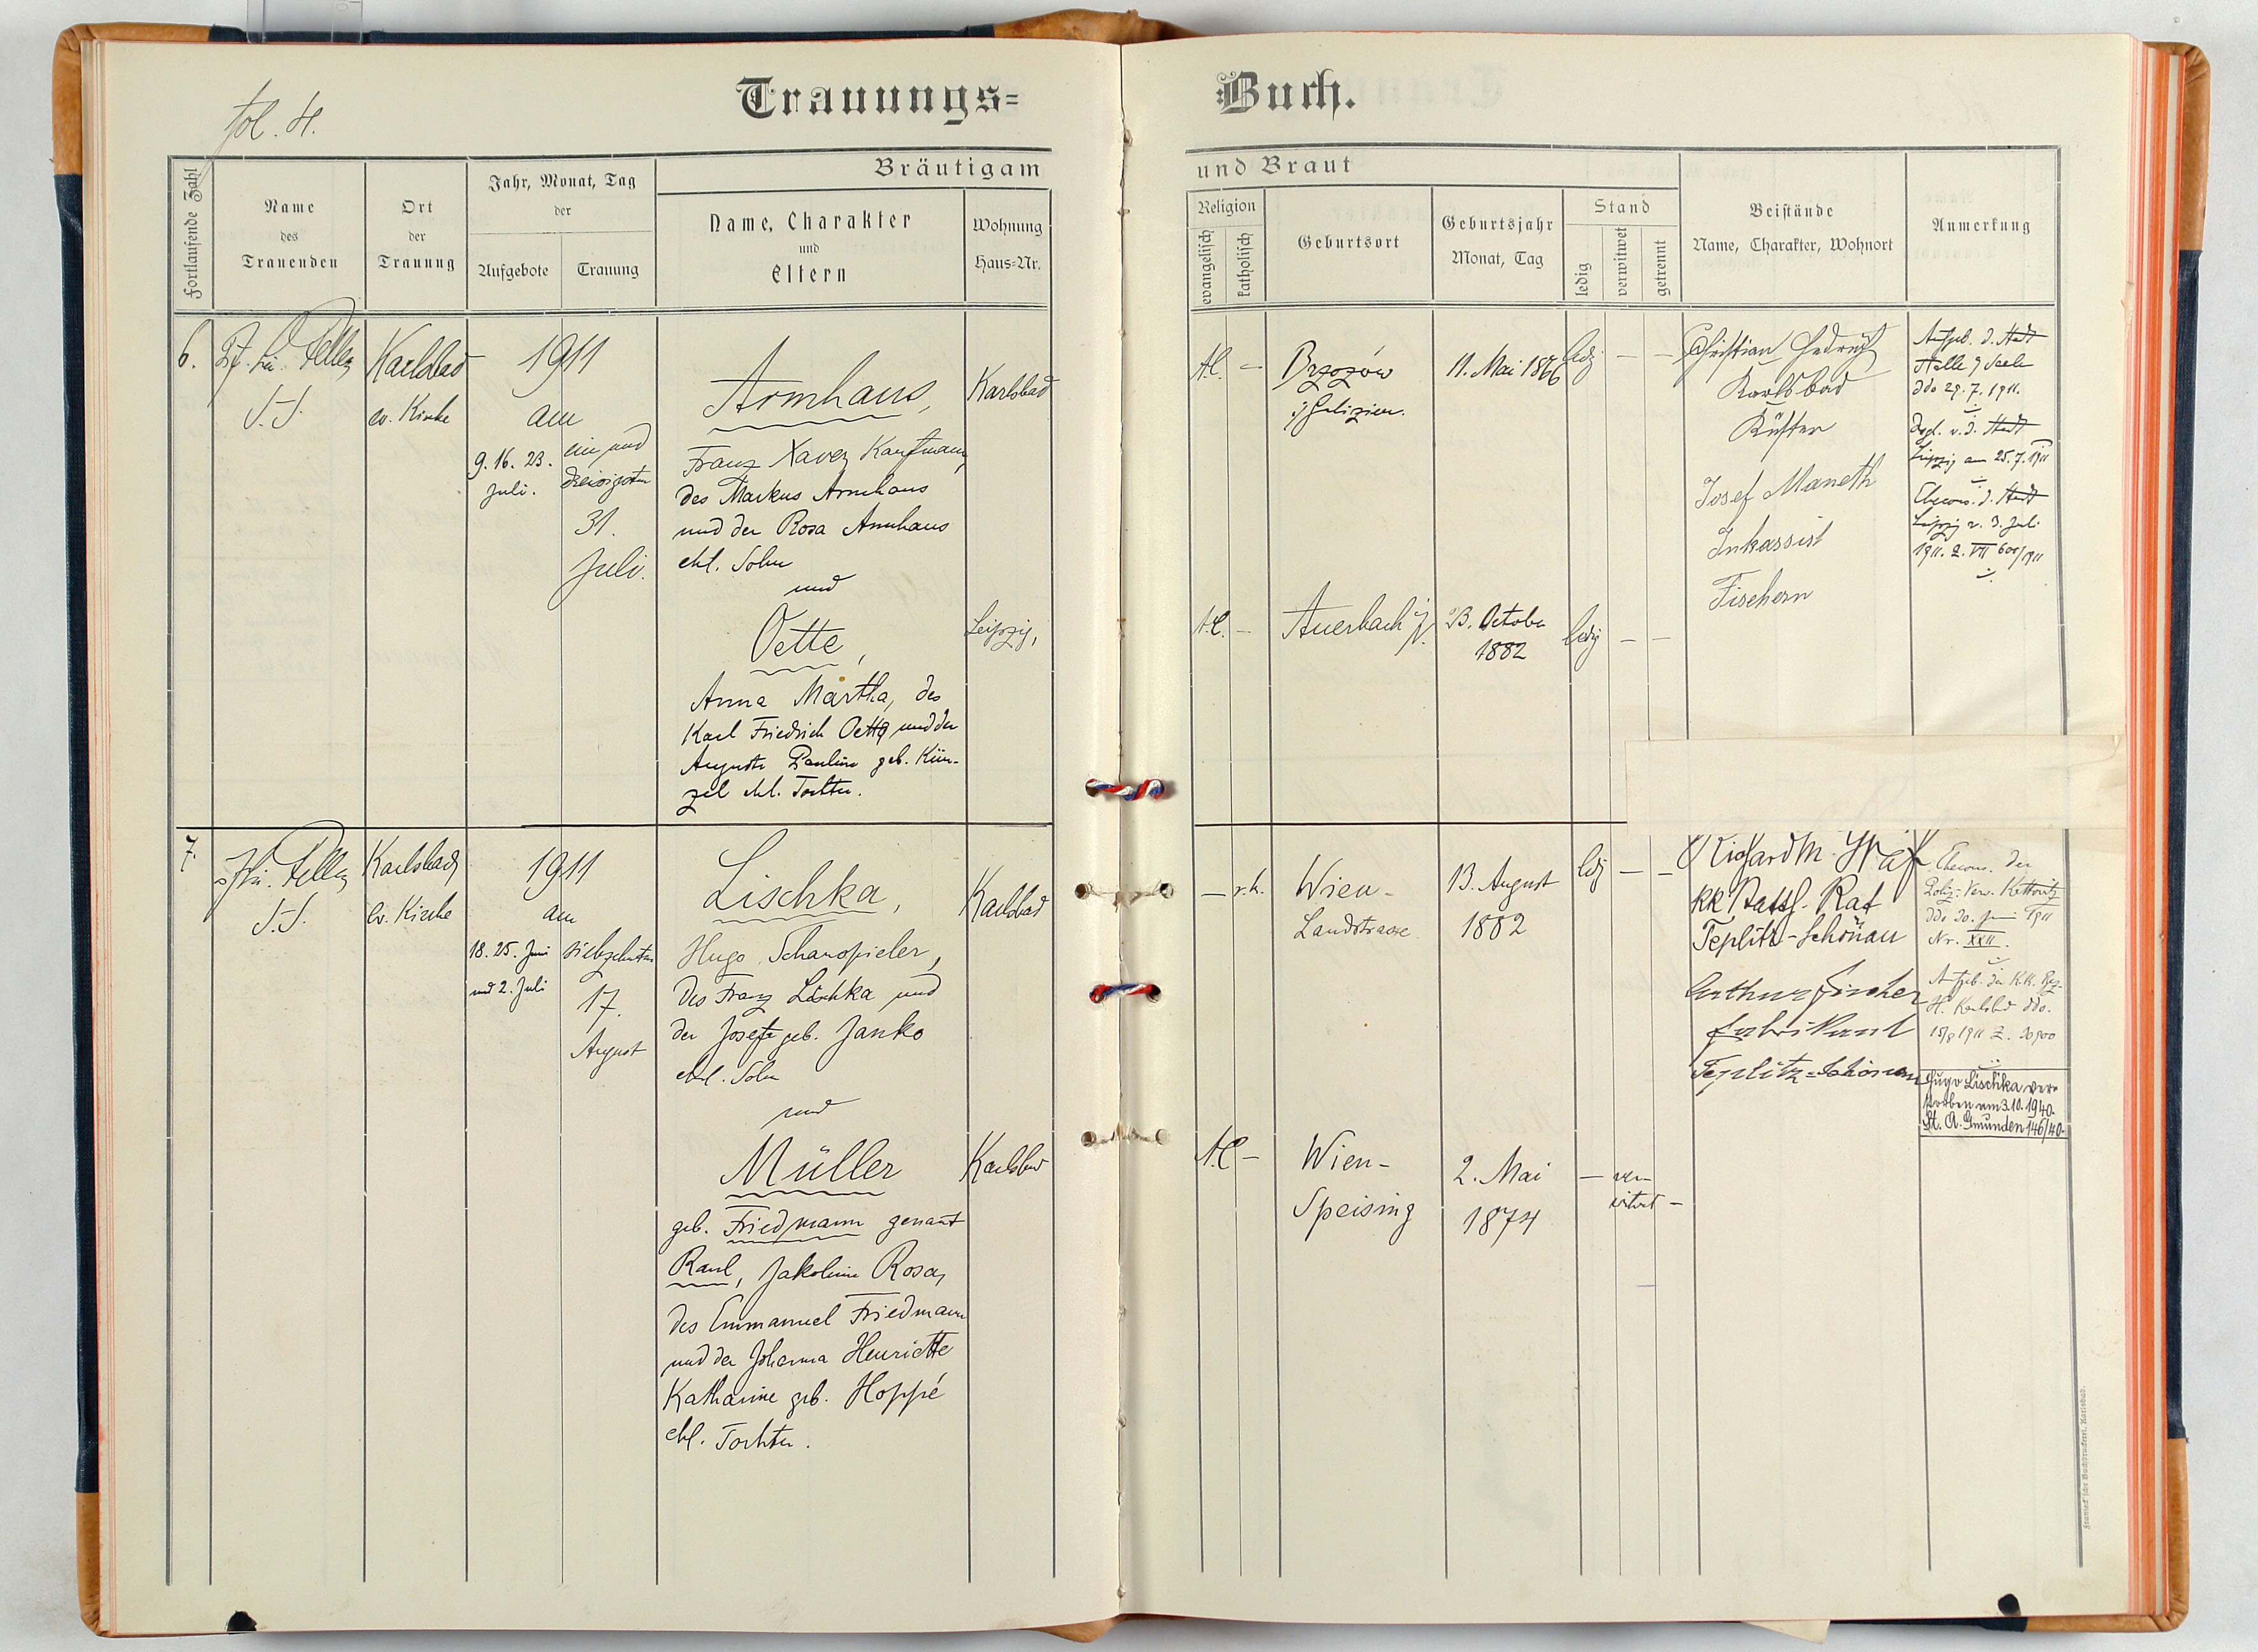 fol. 4.
Trauungs=
Buch.
Fortlaufende Zahl
Name
des
Trauenden
Ort
der
Trauung
Jahr, Monat, Tag
der
Aufgebote
Trauung
Bräutigam
Name, Charakter
und
Eltern
Wohnung
Haus=Nr.
und Braut
Religion
evangelisch
katholisch
Geburtsort
Geburtsjahr
Monat, Tag
Stand
ledig
verwitwet
getrennt
Beistände
Name, Charakter, Wohnort
Anmerkung
6.
Karlsbad
ev. Kirche
1911
am
9. 16. 23.
Juli.
ein und
dreissigsten
31.
Juli.
Armhaus,
Franz Xaver Kaufmann,
des Markus Armhaus
und der Rosa Armhaus
ehl. Sohn
und
Oette,
Anna Martha, des
Karl Friedrich Oette und der
Auguste Pauline geb. Kün-
zel ehl. Tochter.
Karlsbad
Leipzig,
A.C. —
Brzozów
i/Galizien.
11. Mai 1866
ledg. — —
A.C. —
Auerbach i/V.
23. October
1882
ledig — —
Christian
Karlsbad
Küster
Josef Maneth
Inkassist
Fischern
Aufgeb. d. Stadt
Halle / Saale
ddo 29. 7. 1911.
v. d. Stadt
Leipzig am 25. 7. 1911
d. Stadt
Leipzig v. 3. Juli
1911. 2. VII 600/1911
7.
Karlsbad
ev. Kirche
1911
am
18. 25. Juni
und 2. Juli
siebzehnten
17.
August
Lischka,
Hugo, Schauspieler,
des Franz Lischka und
der Josefa geb. Janko
ehl. Sohn
und
Müller
geb. Friedmann genant
Raul, Jakobine Rosa,
des Emmanuel Friedmann
und der Johanna Henriette
Katharine geb. Hoppé
ehl. Tochter.
Karlsbad
Karlsbad
— r. k.
Wien-
Landstrasse
13. August
1882
ldg — —
A.C —
Wien-
Speising
2. Mai
1874
— ver-
witwet —
Richard M. Graf
kk Statth. Rat
Teplitz-Schönau
Arthur Fischer
Fabrikant
Teplitz=Schönau
der
Kattowitz
ddo 20. Juni 1911
Nr. XXII.
Aufgeb. der K.K. Bez.
H. Karlsbad ddo.
15/8 1911 Z.
Hugo Lischka ver-
storben am 3.10.1940.
St. A. Gmunden 146/40.